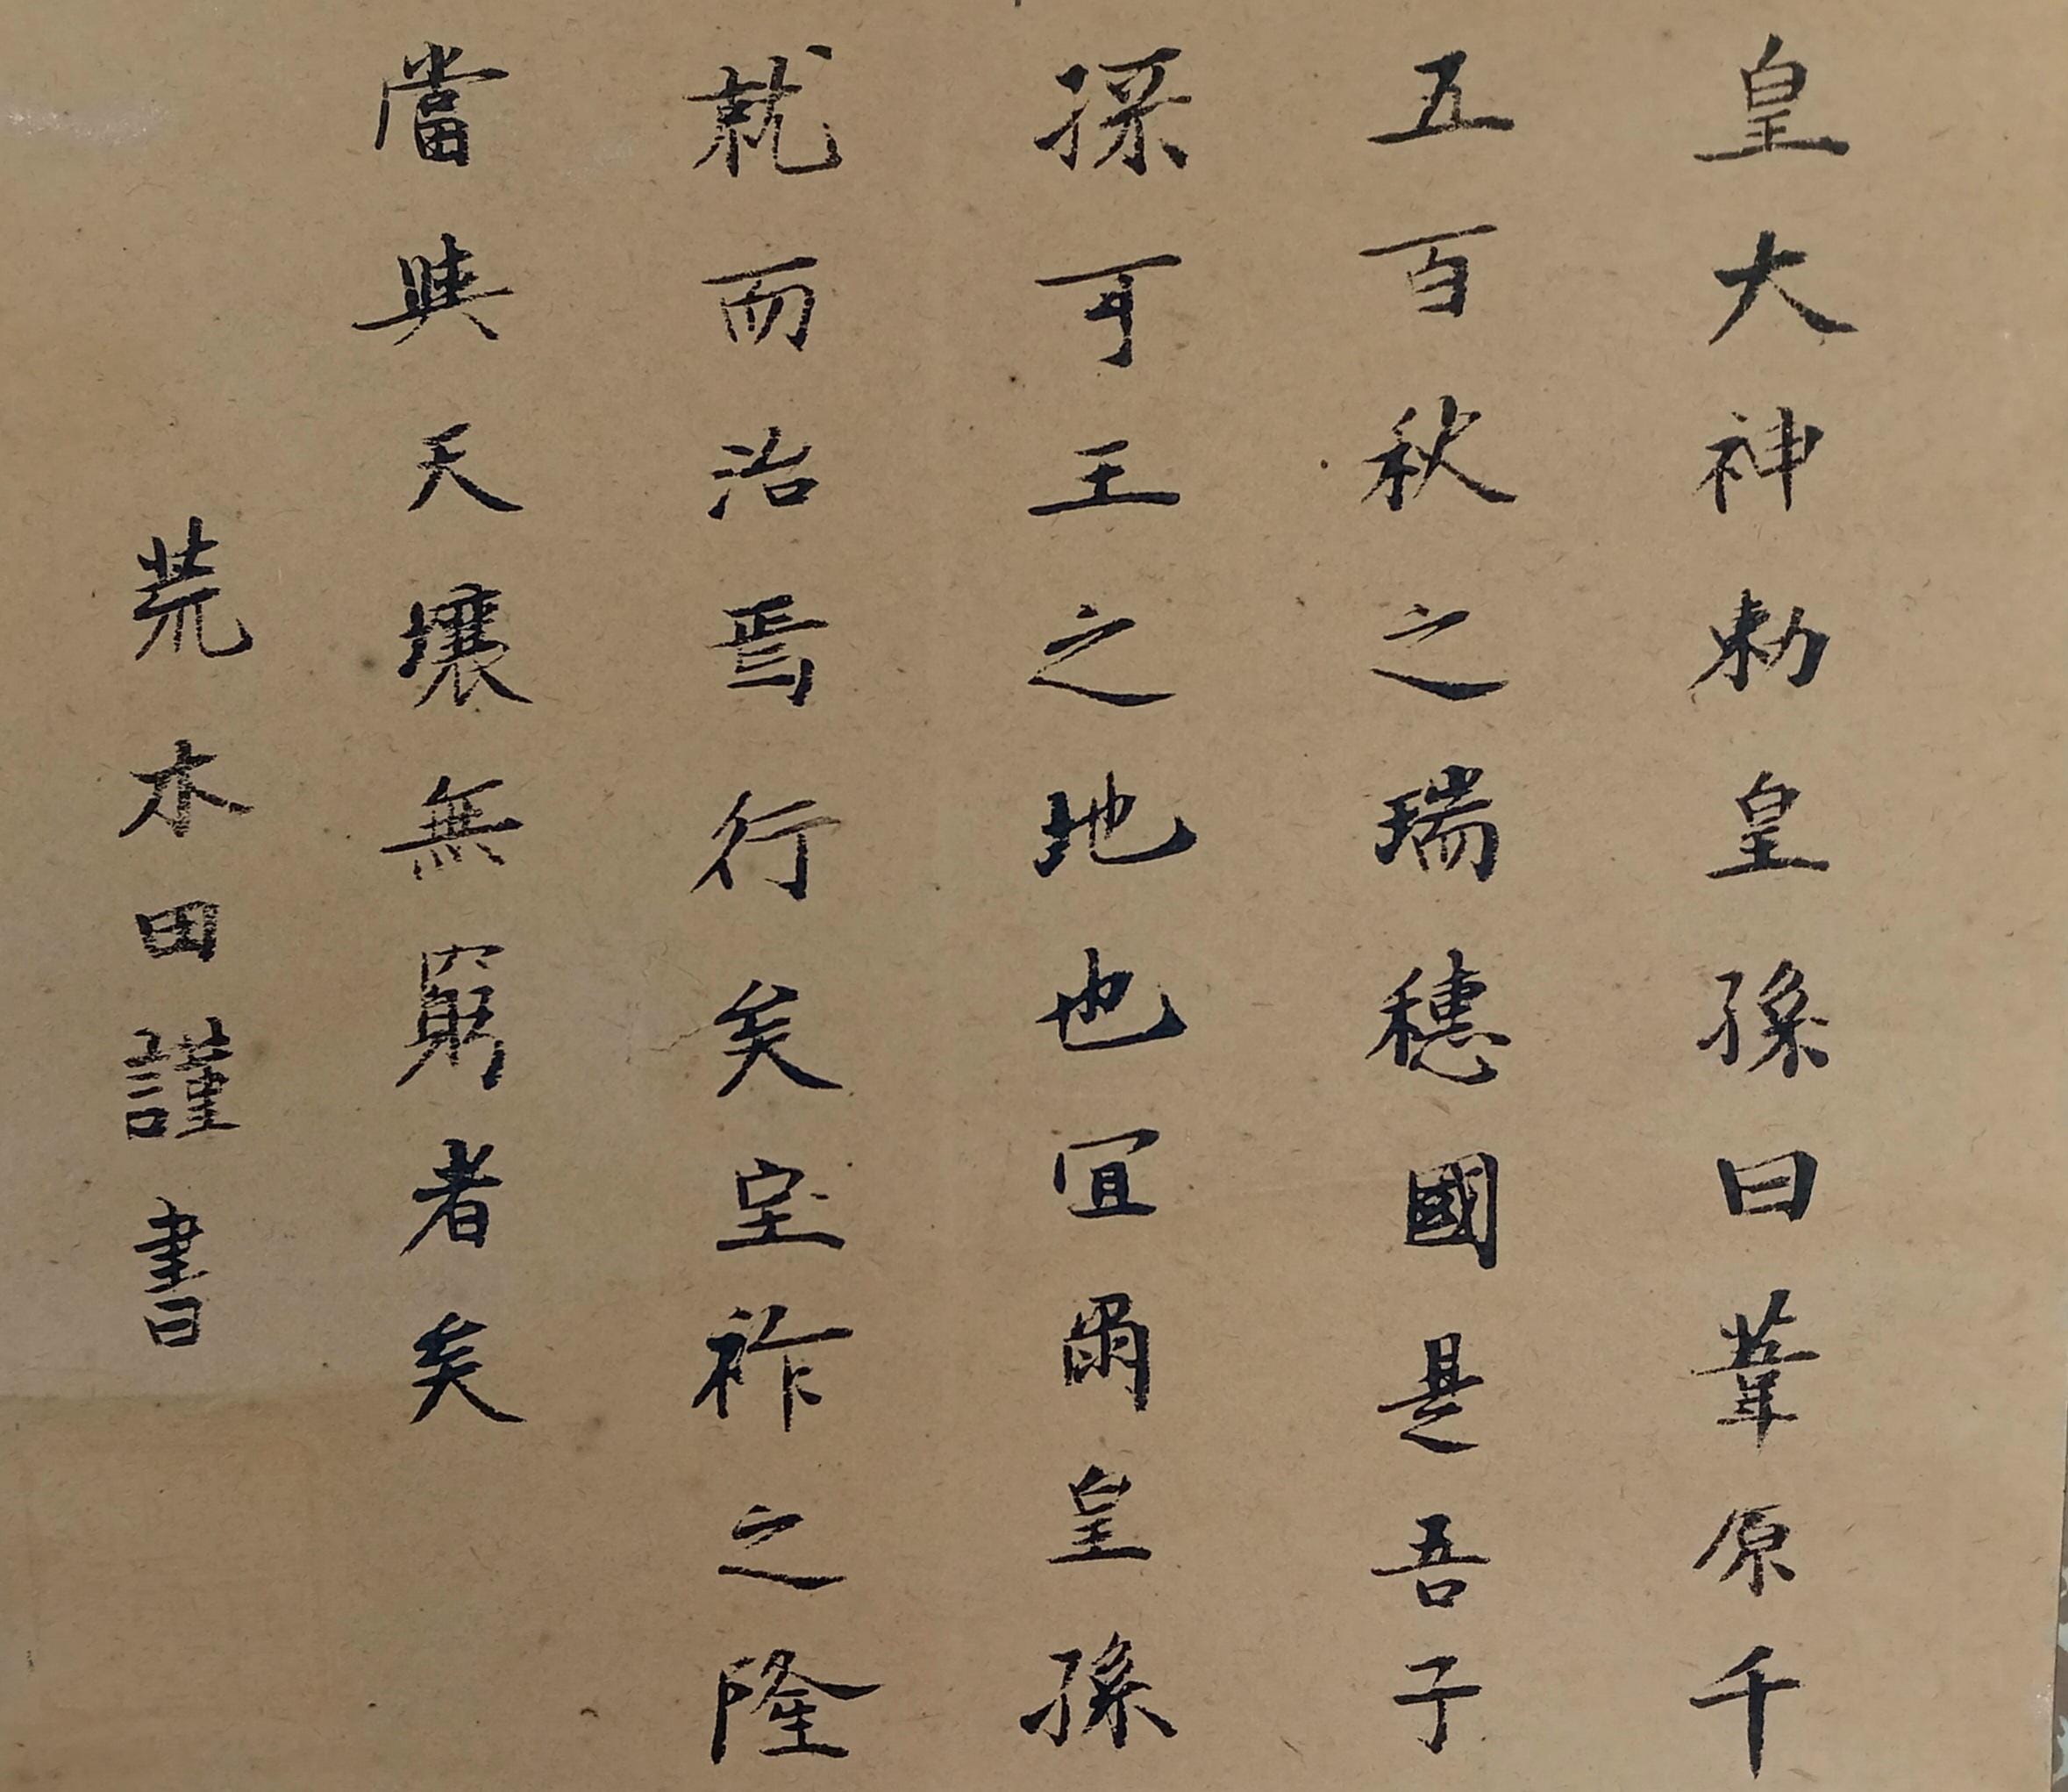 皇大神勅皇孫曰葦原千
五百秋之瑞穂國是吾子
孫可王之地也宜爾皇孫
就而治焉行矣宝祚之隆
當與天壌無窮者矣
荒木田謹書